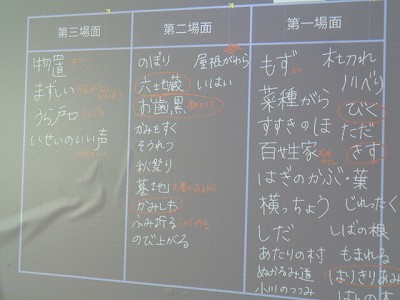 第一場面
もず
菜種がら
すすきのほ
百姓家
はぎのかぶ・葉
横っちょう
しだ
あたりの村
ぬかるみ道
小川のつつみ
木切れ
川べり
びく
ただ
きす
じれったく
しばの根
もまれる
はりきりあみ
第二場面
のぼり
六地蔵
お歯黒
かみをすく
そうれつ
秋祭り
墓地
かみしも
ふみ折る
のび上がる
屋根がわら
いはい
第三場面
物置
まずしい
うら戸口
いせいのいい声